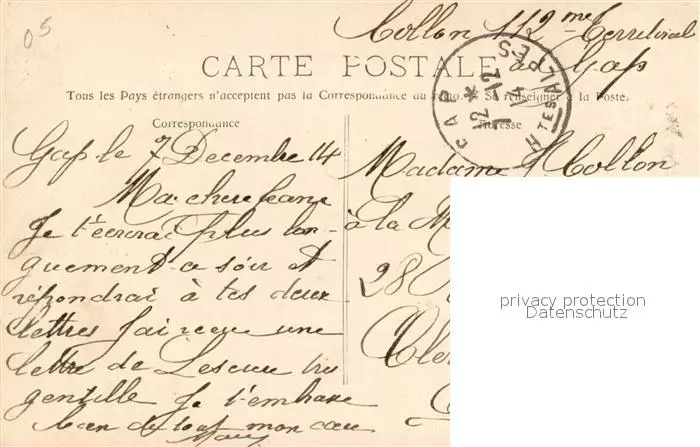 05
Collon 112me Territorial
CARTE POSTALE
à Gap
GAP
12 *
7-12
14
HTES ALPES
Tous les Pays étrangers n'acceptent pas la Correspondance au recto. Se renseigner à la Poste.
Correspondance
Adresse
Gap le 7 Decembre 14
Ma chere Jeane
Je t'écrirai plus lon-
guement ce soir et
répondrai à tes deux
lettres J'ai recu une
lettre de Lescure tres
gentille Je t'embrase
bien de tout mon cœur
Madame Collon
à la M
28
Cler
privacy protection
Datenschutz